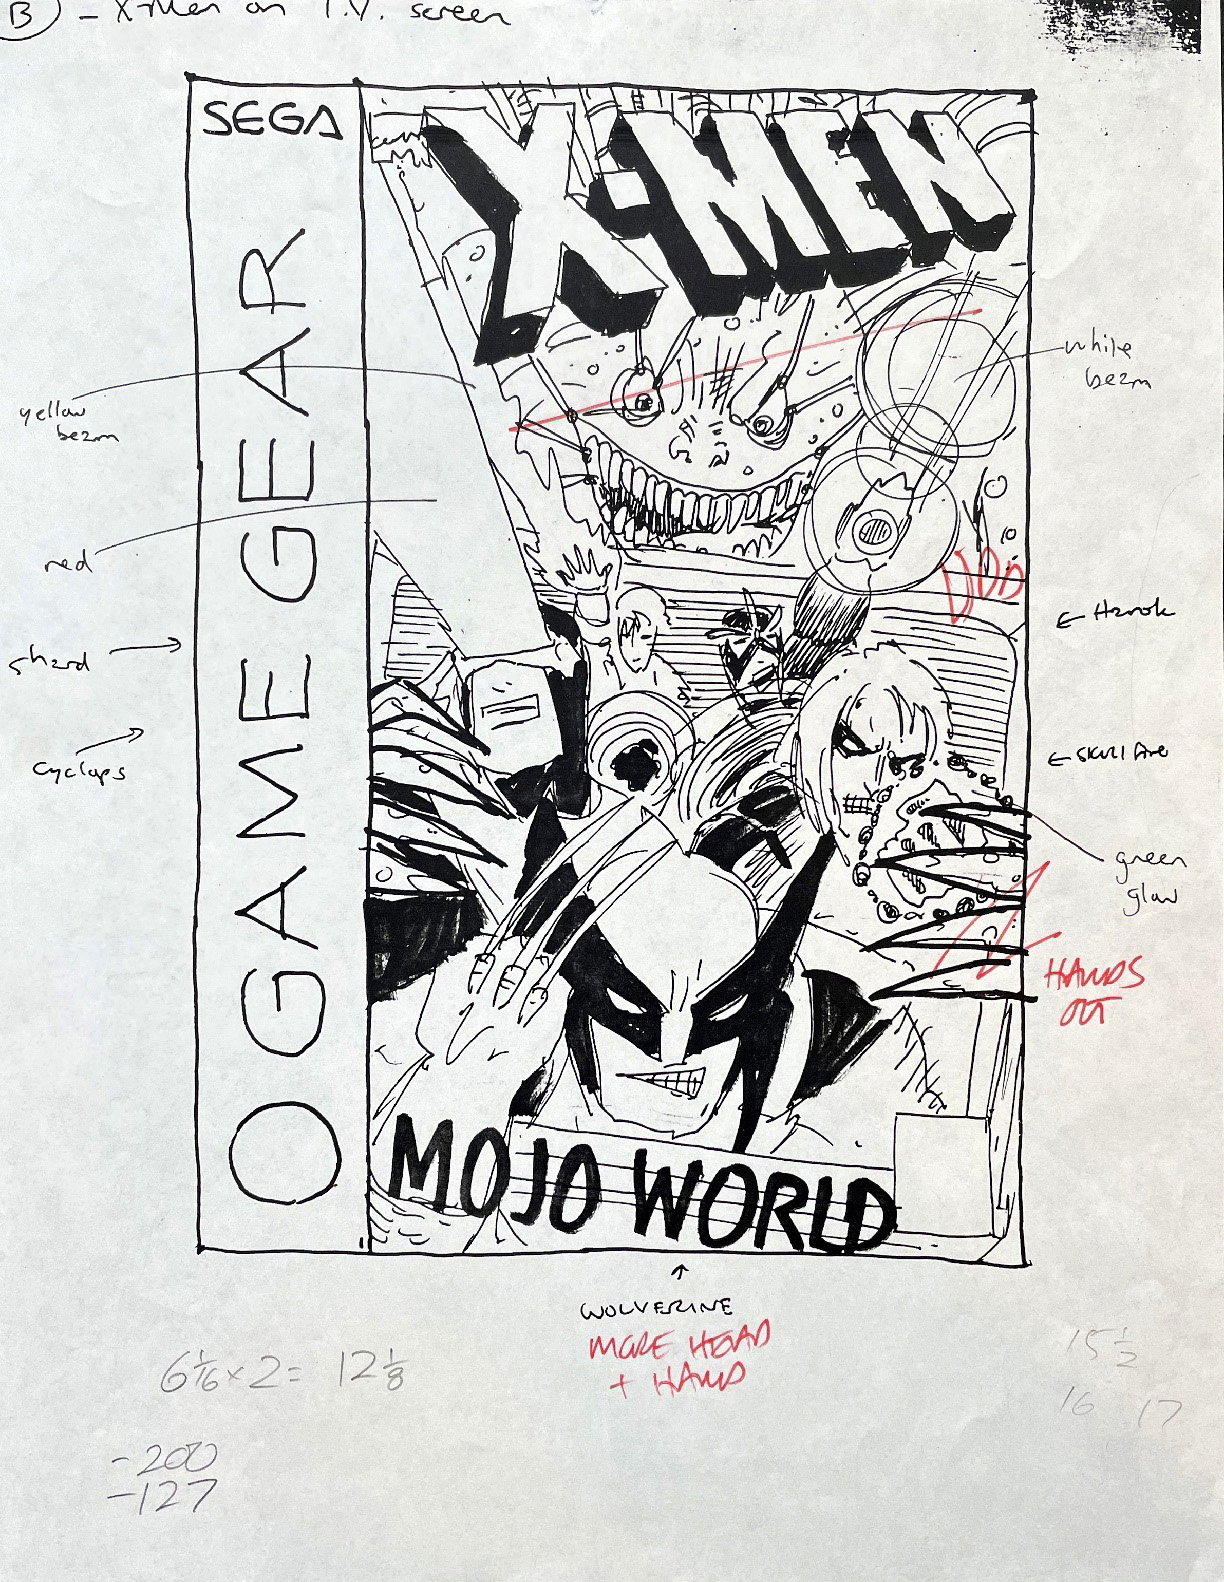 B - X-Men on T.V. screen
SEGA
GAME GEAR
X-MEN
white
beam
yellow
beam
red
← Havok
shard →
cyclops
← SKULL FIRE
green
glow
HANDS
OUT
MOJO WORLD
↑
WOLVERINE
MORE HEAD
+ HAND
6 1/16 × 2 = 12 1/8
15 1/2
16 17
-200
-127